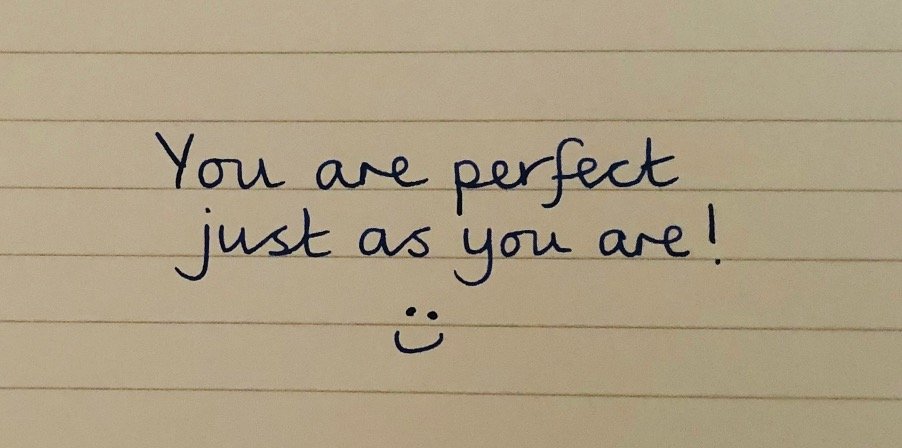 You are perfect
just as you are!